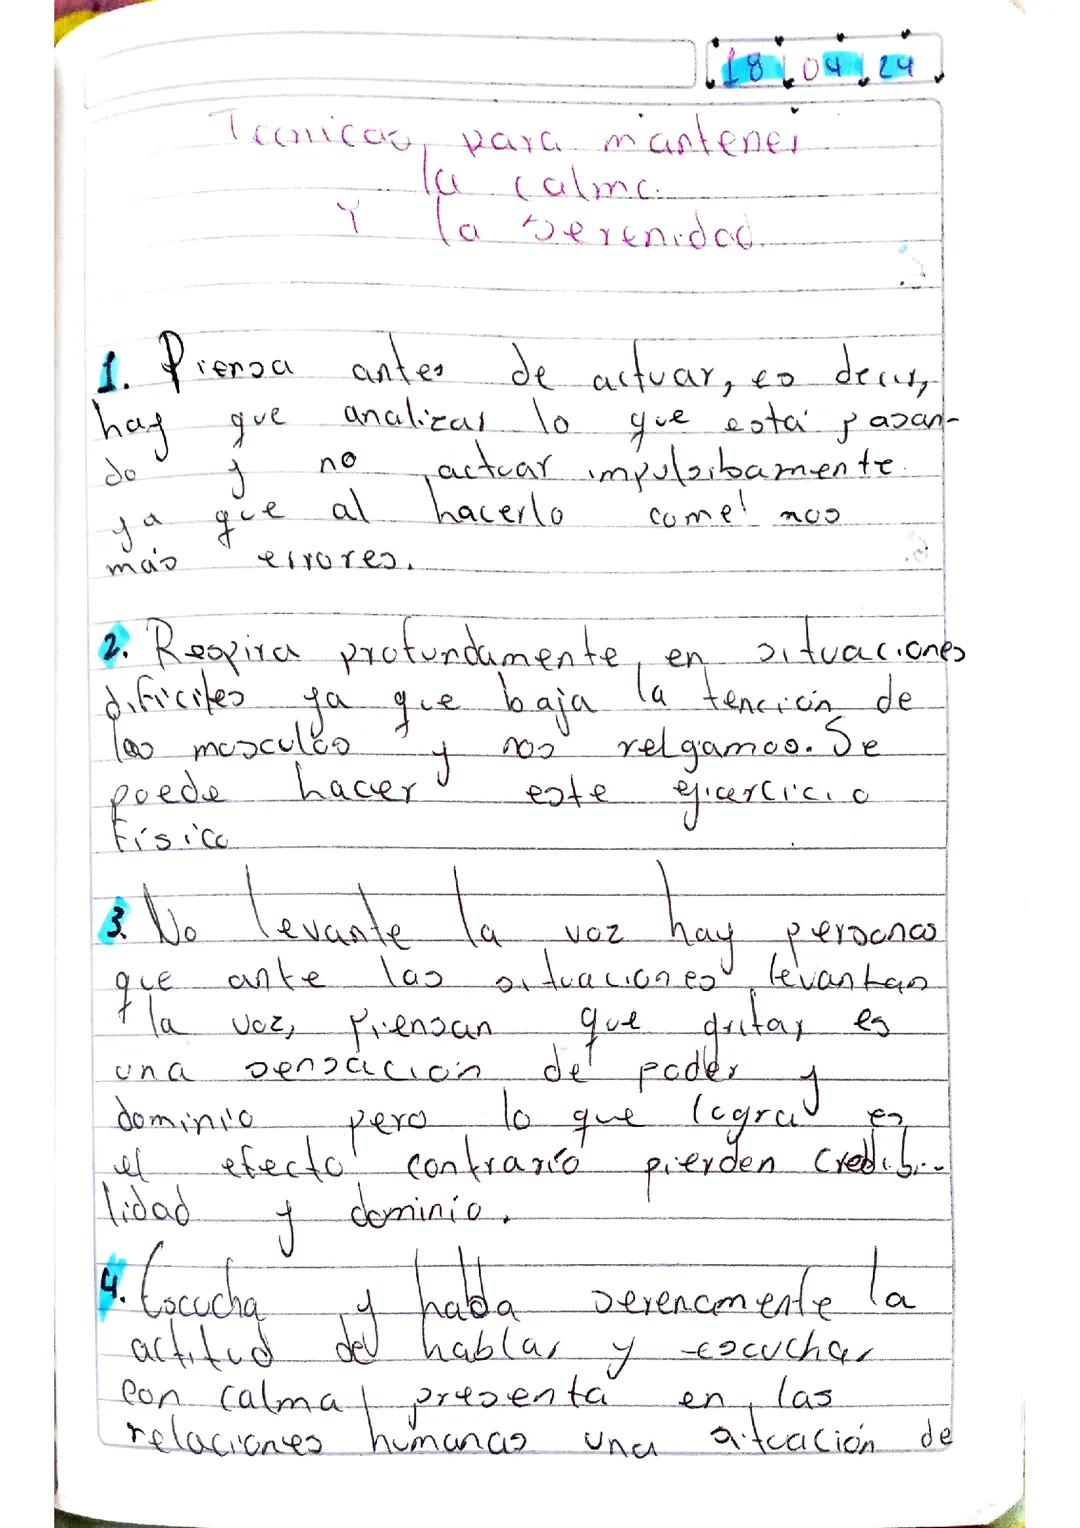 18 04 24
Tecnicas para mantener
la calma
Y la serenidad.
1. Piensa antes de actuar, es decir,
hay que analizar lo que está pasan-
do y no actuar impulsibamente
ya que al hacerlo cometmos
más errores.
2. Respira profundamente, en situaciones
dificiles ya que baja la tención de
los musculos y nos relgamos. Se
puede hacer este ejercicio
Físico
3. No levante la voz hay personas
que ante las situaciones levantan
la voz, piensan que gritar es
una sensación de poder y
dominio pero lo que logra es
el efecto contrario pierden credibi-
lidad y dominio.
4. Escucha y habla serenamente la
actitud de hablar y escuchar
con calma presenta en las
relaciones humanas una situación de